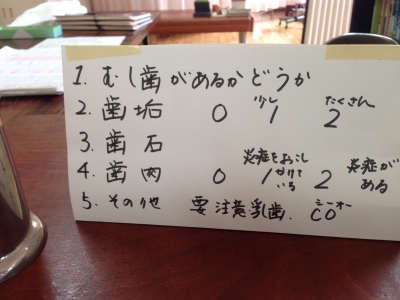 1. むし歯があるかどうか
2. 歯垢 0 少し1 たくさん2
3. 歯石
4. 歯肉 0 炎症をおこしかけている1 2炎症がある
5. その他 要注意乳歯. シーオーCO